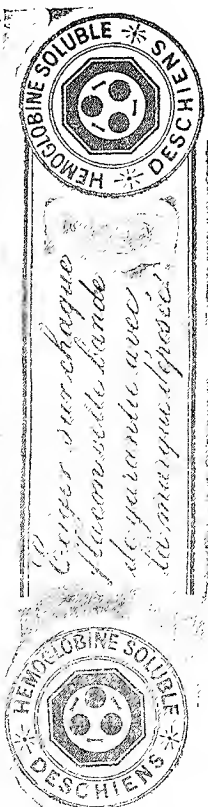 HEMOGLOBINE SOLUBLE
DESCHIENS
Exiger sur chaque
flacon cette bande
de garantie avec
la marque déposée
HEMOGLOBINE SOLUBLE
DESCHIENS